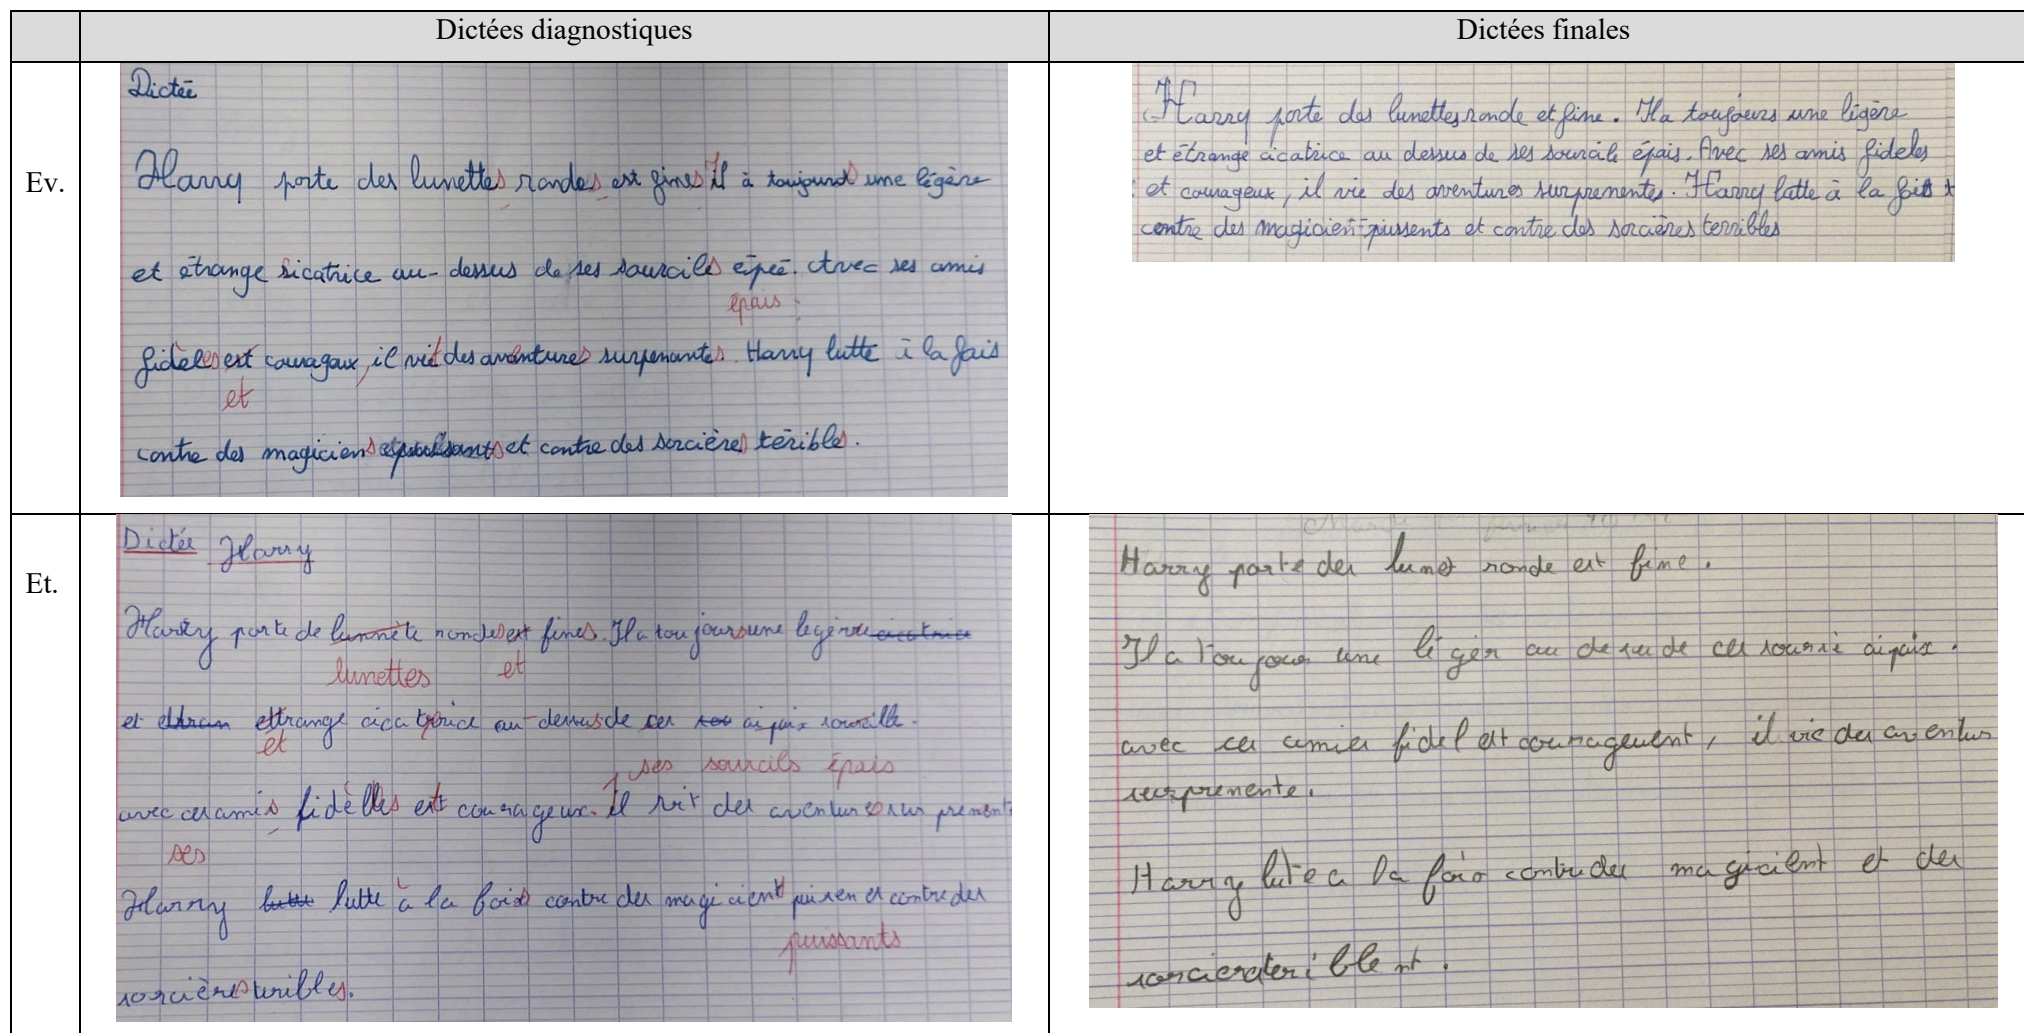 Dictées diagnostiques
Dictées finales
Ev.
Dictée
Harry porte des lunettes rondes est fines il à toujours une légère
et étrange sicatrice au-dessus de ses sourcils épeé. Avec ses amis
épais.
fidèles est couragaux, il vit des aventures surpenantes. Harry lutte à la fais
et
contre des magiciens et contre des sorcières téribles.
Harry porte des lunettes ronde et fine. Il a toujours une légère
et étrange cicatrice au dessus de ses sourcils épais. Avec ses amis fideles
et courageux, il vie des aventures surprenentes. Harry lutte à la fois
contre des magicient pussents et contre des sorcières terribles
Et.
Dictée Harry
Harry porte de lunnète rondes est fines. Il a toujours une legère cicatrice
lunettes et
et ettrange cicatrice au-dessus de ses aipaix sourcille.
et ses sourcils épais
avec ces amis fidèlles est courageux. il vit des aventures surprenent
ses
Harry lutte à la fois contre des magicient puisen et contre des
puissants
sorcières terribles.
Harry porte des lunet ronde est fine.
Il a toujour une légèr au desu de ces soursi aipaix.
avec ces amies fidel est courageuent, il vie des aventus
surprenente.
Harry lute a la fois contre des magicient et des
sorcières teriblent.